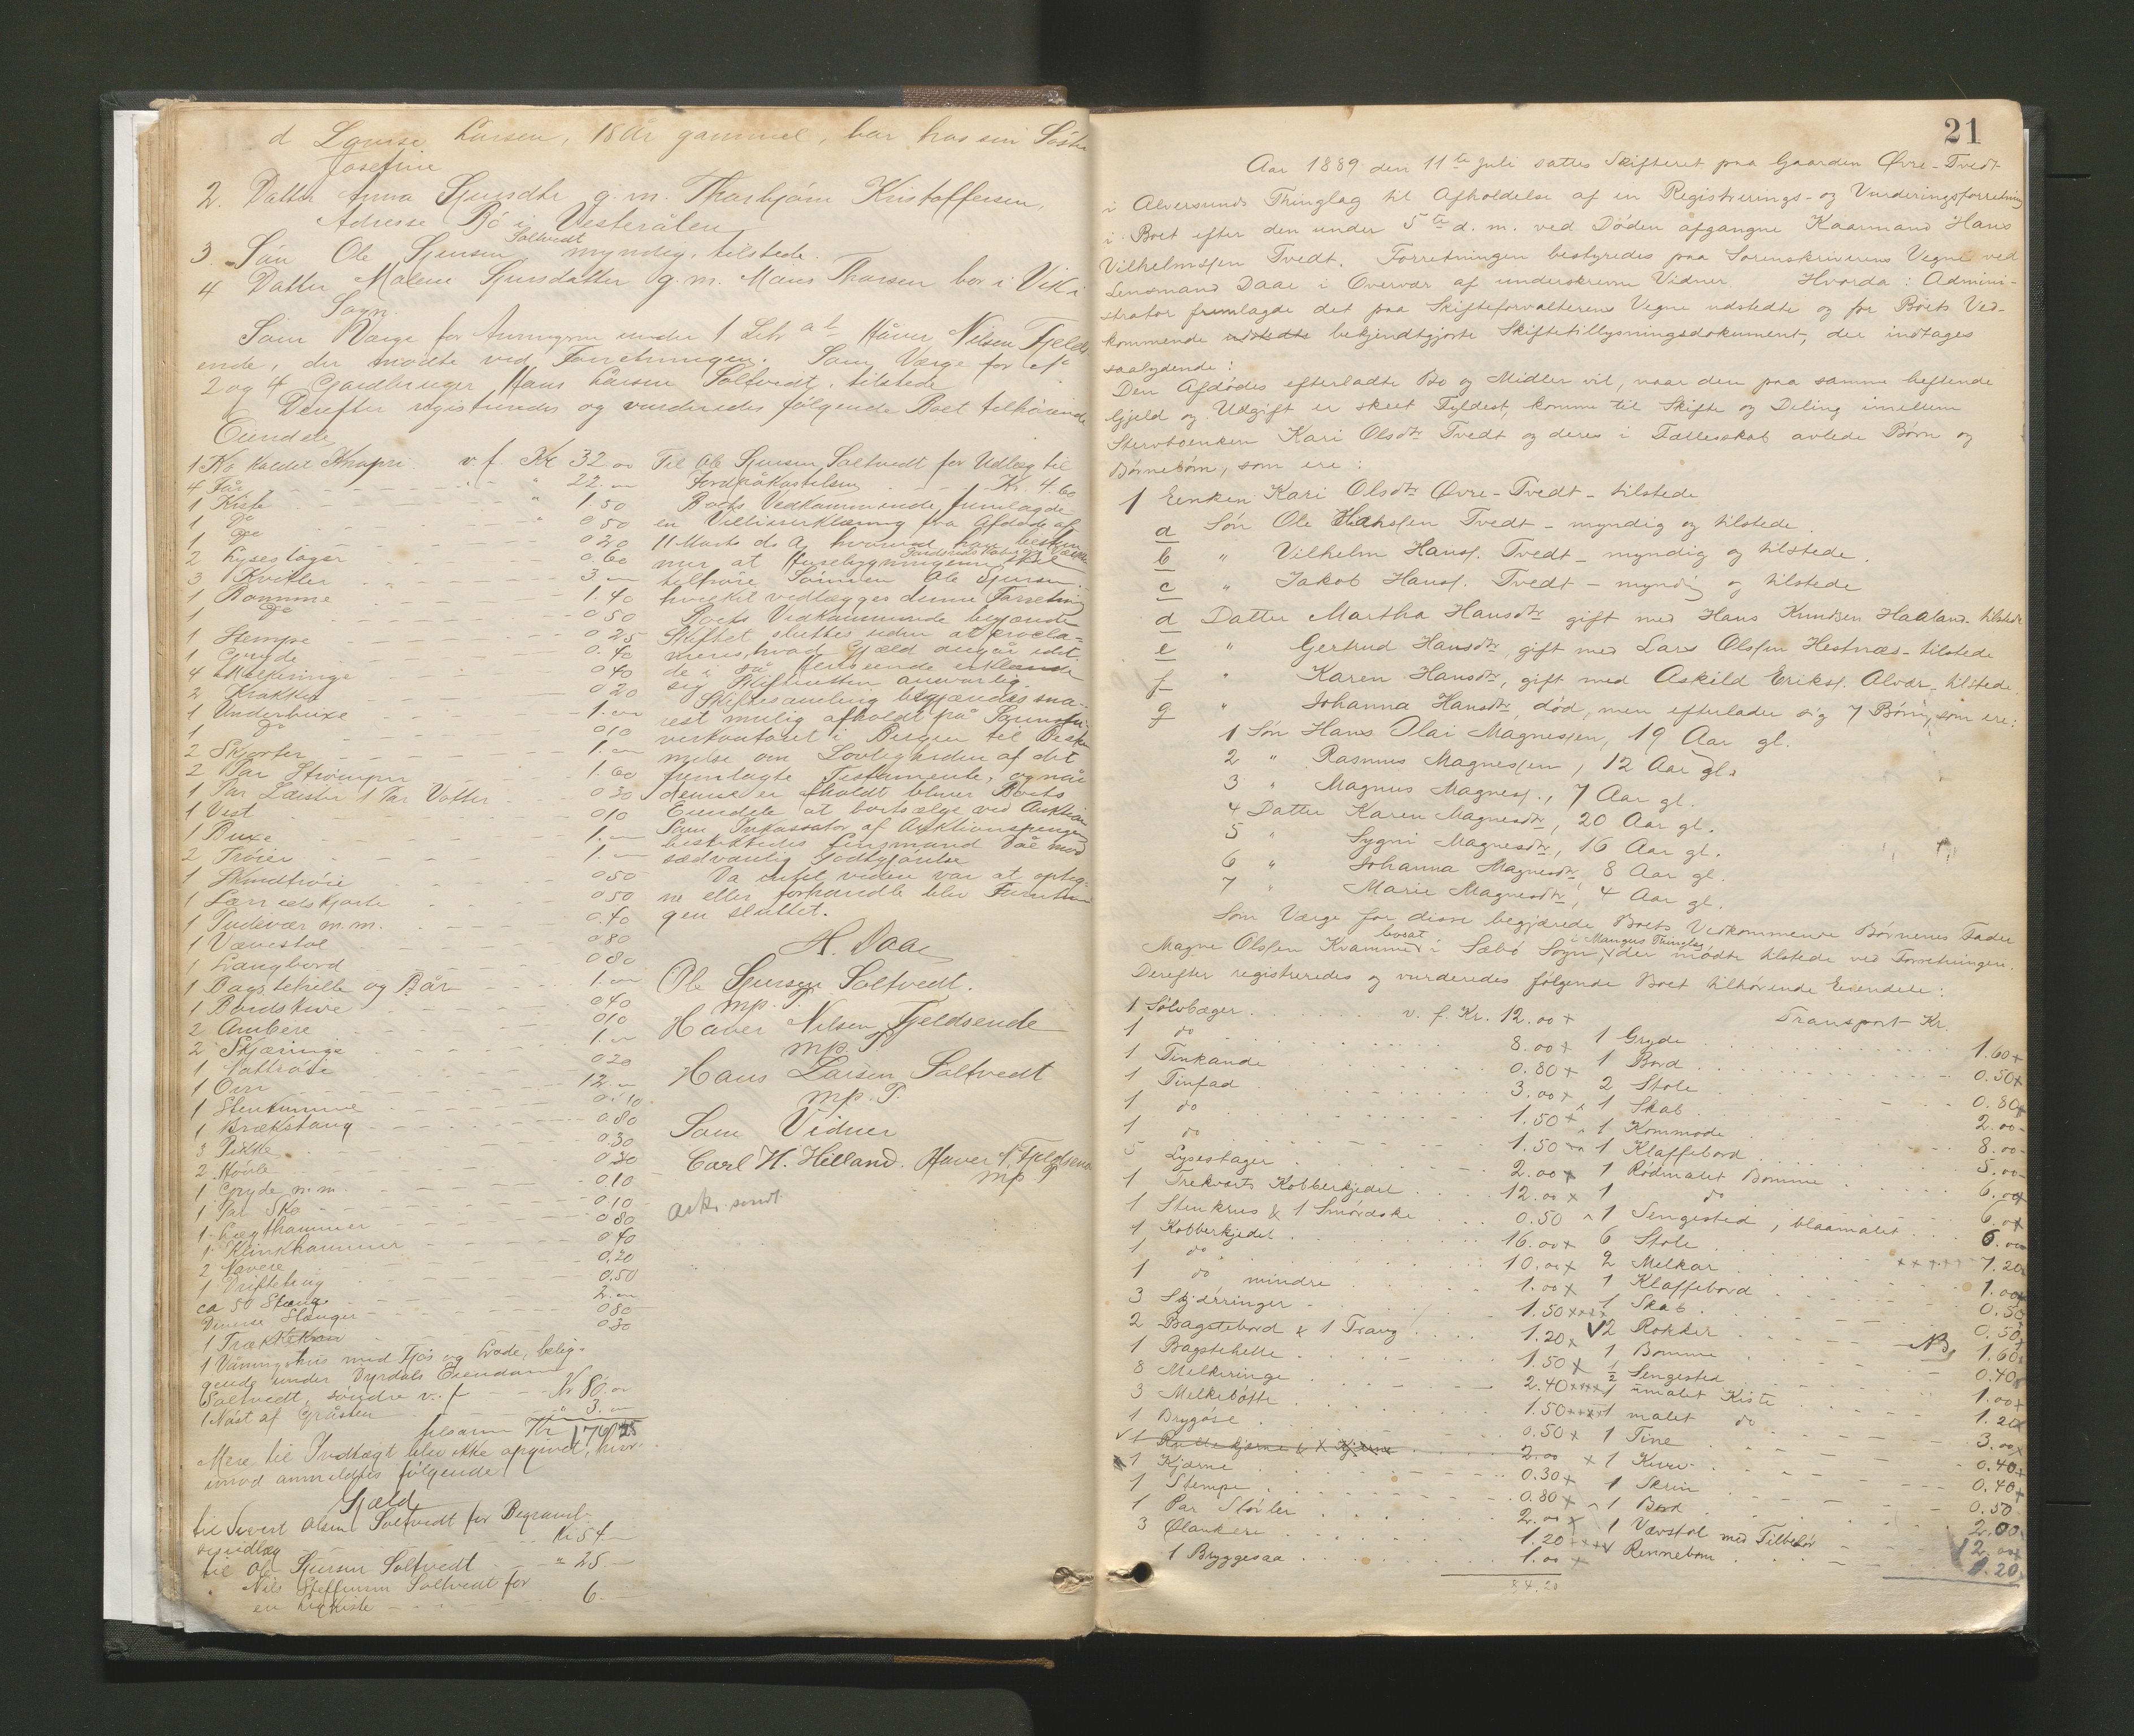 d Lovise Larsen, 18 År gammel, bor hos sin Søster
Josefine
2. Datter Anna Sjursdtr g. m. Thorbjørn Kristoffersen,
Adresse Bö i Vesterålen
3. Søn Ole Sjursen Soltvedt myndig, tilstede.
4 Datter Malene Sjursdatter g. m. Mons Thorsen bor i Vik i
Sogn.
Som Værge for Arvingerne under 1 Litr a-d Håver Nilsen Fjelds
ende, der mødte ved Forretningen. Som Værge for
2 og 4 Gardbruger Hans Larsen Soltvedt, tilstede
Derefter registreredes og vurderedes følgende Boet tilhørende
Eiendele
1 Ko kaldet v. f. Kr 32.00
4 Får " 22.—
1 Kiste " 1.50
1 Do " 0 50
1 Do 0 20
2 Lysestager 0.60
3 Kvitler 3.—
1 Bomme 1.40
1 Do 0 50
1 Stempe 0 25
1 Gryde 0.40
4 Melkeringe 0 40
2 Krakker 0 20
1 Underbuxe 1.—
1 Do 0 10
2 Skjorter 1.—
2 Par Strømper 1.60
1 Par Læster 1 Par Votter 0 30
1 Vest 0 10
1 Buxe 1.—
2 Trøier 1.—
1 Skindtrøie 0 50
1 Lærredskjorte 0 50
1 Pudevær m.m. 0.40
1 Vævestol 0 80
1 Langbord 0 80
1 Bagstehelle og Bår 1.—
1 Bordskive 0 40
2 Ambere 0 10
2 Skjæringe 1.—
1 Nattrøie 0 20
1 Ovn 12.—
1 Stenkumme 0.10
1 Brækstang 0.80
3 Pikke 0.30
2 0 30
1 Gryde m.m. 0.10
1 Par Sko 0.10
1 Lægthammer 0 80
1 Klinkhammer 0 40
2 Navere 0.20
1 0.50
ca 50 2.—
Diverse Stænger 0 80
1 0 30
1 Våningshus med Fjøs og Lade, belig-
gende under Dyrdals Eiendom
Soltvedt, søndre v. f Kr 80.00
1 Nøst af Gråsten " 3.—
tilsammen Kr 176 25
Mere til Indtægt blev ikke opgivet, hvor-
imod anmeldtes følgende
Gjæld
til Sivert Olsen Soltvedt for Begravel-
sesudlæg Kr 54—
til Ole Sjursen Soltvedt " 25.—
" Nils Steffensen Soltvedt for
en Ligkiste 6.—
Til Ole Sjursen Soltvedt for Udlæg til
Jordpåkastelsen Kr. 4.60
Boets Vedkommende fremlagde
en Villieserklæring fra Afdøde af
11 Marts d. A. hvorved han bestem
mer at Husebygningerne skal
tilhøre Sønnen Ole Sjursen.
hvilket vedlægges denne Forretning
Boets Vedkommende begjærede
Skiftet sluttet uden at procla-
meres, hvad Gjæld angår idet
de i så Henseende erklærede
sig Skifteretten ansvarlig.
Skiftesamling begjæredes sna-
rest mulig afholdt på Sorenskri-
verkontoret i Bergen til Bestem
melse om Lovligheden af det
fremlagte Testamente, og når
denne er afholdt bliver Boets
Eiendele at bortsælge ved Auktion
Som Inkassator af Auktionspengene
beskikkedes Lensmand Dåe mod
sædvanlig Godtgjørelse
Da intet videre var at opteg-
ne eller forhandle blev Forretnin
gen sluttet.
H. Daae
Ole Sjursen Soltvedt.
mp. P.
Haver Nilsen Fjeldsende
mp. P
Hans Larsen Soltvedt
mp. P.
Som Vidner
Carl H. Hilland. Haver N. Fjeldsende
mp P
21
Aar 1889 den 11te Juli sattes Skifteret paa Gaarden Øvre-Tvedt
i Alversunds Thinglag til Afholdelse af en Registrerings- og Vurderingsforretning
i Boet efter den under 5te d. m. ved Døden afgangne Kaarmand Hans
Vilhelmssen Tvedt. Forretningen bestyredes paa Sorenskriverens Vegne ved
Lensmand Daae i Overvær af underskrevne Vidner Hvorda: Admini-
strator fremlagde det paa Skifteforvalterens Vegne udstedte og for Boets Ved-
kommende udstedte bekjendtgjorte Skiftetillysningsdokument, der indtages
saalydende:
Den Afdødes efterladte Bo og Midler vil, naar den paa samme heftende
Gjeld og Udgift er skeet Fyldest, komme til Skifte og Deling imellem
Stervboenken Kari Olsdtr Tvedt og deres i Fællesskab avlede Børn og
Børnebørn, som ere:
1 Enken Kari Olsdtr Øvre-Tvedt - tilstede
a Søn Ole Hanssen Tvedt - myndig og tilstede.
b " Vilhelm Hanss. Tvedt - myndig og tilstede.
c " Jakob Hanss. Tvedt - myndig og tilstede
d Datter Martha Hansdtr gift med Hans Knudsen Haaland - tilstede
e " Gertrud Hansdtr, gift med Lars Olssen Hestnæs - tilstede
f " Karen Hansdtr, gift med Askild Eriks. Alvær - tilstede.
g " Johanna Hansdtr, død, men efterlader sig 7 Børn, som ere:
1 Søn Hans Olai Magnessen, 19 Aar gl.
2 " Rasmus Magnessen, 12 Aar gl.
3 " Magnus Magness., 7 Aar gl.
4 Datter Karen Magnesdtr, 20 Aar gl.
5 " Sygni Magnesdtr, 16 Aar gl.
6 " Johanna Magnesdtr, 8 Aar gl.
7 " Marie Magnesdtr, 4 Aar gl.
Som Værge for disse begjærede Boets Vedkommende Børnenes Fader
Magne Olssen Kvamme bosat i Sæbø Sogn, i Mangers Thinglag der mødte tilstede ved Forretningen.
Derefter registreredes og vurderedes følgende Boet tilhørende Eiendele:
1 Sølvbæger v. f. Kr. 12.00 +
1 do 8.00 +
1 Tinkande 0.80 +
1 Tinfad 3.00 +
1 do 1.50 +
1 do 1.50
5 Lysestager 2.00 +
1 Trekvarts Kobberkjedel 12.00 +
1 Stenkrus & 1 Smørdske 0.50
1 Kobberkjedel 16.00 +
1 do 10.00 +
1 do mindre 1.00 +
3 Skjærringer 1.50
2 Bagstebord & 1 Traug 1.20 +
1 Bagstehelle 1.50 +
8 Melkeringe 2.40
3 Melkebøtte 1.50
1 Brygøse 0.50 +
2.00
1 Kjærne 0.30 +
1 Stempe 0.80 +
1 Par Støvler 2.00 +
3 Ølankere 1.20
1 Bryggesaa 1.00 +
84.20
Transport Kr.
1 Gryde 1.60 +
1 Bord 0.50 +
2 Stole 0.80 +
1 Skab 2.00 -
1 Kommode 8.00 -
1 Klaffebord 5.00 -
1 Rødmalet Bomme 6.00 +
1 do 6.00 +
1 Sengested, blaamalet 6.00
6 Stole 7.20
2 Melkar 1.00
1 Klaffebord 0.50
1 Skab 0.50 +
2 Rokker NB, 1.60
1 Bomme 0.40
1/2 Sengested 1.00 +
1 umalet Kiste 1.20
1 malet do 3.00
1 Tine 0.40 +
1 Kurv 0.40 +
1 Skrin 0.50
1 Bord 2.00
1 Vævstol med Tilbehør 2.00 +
Rennebom 1.20